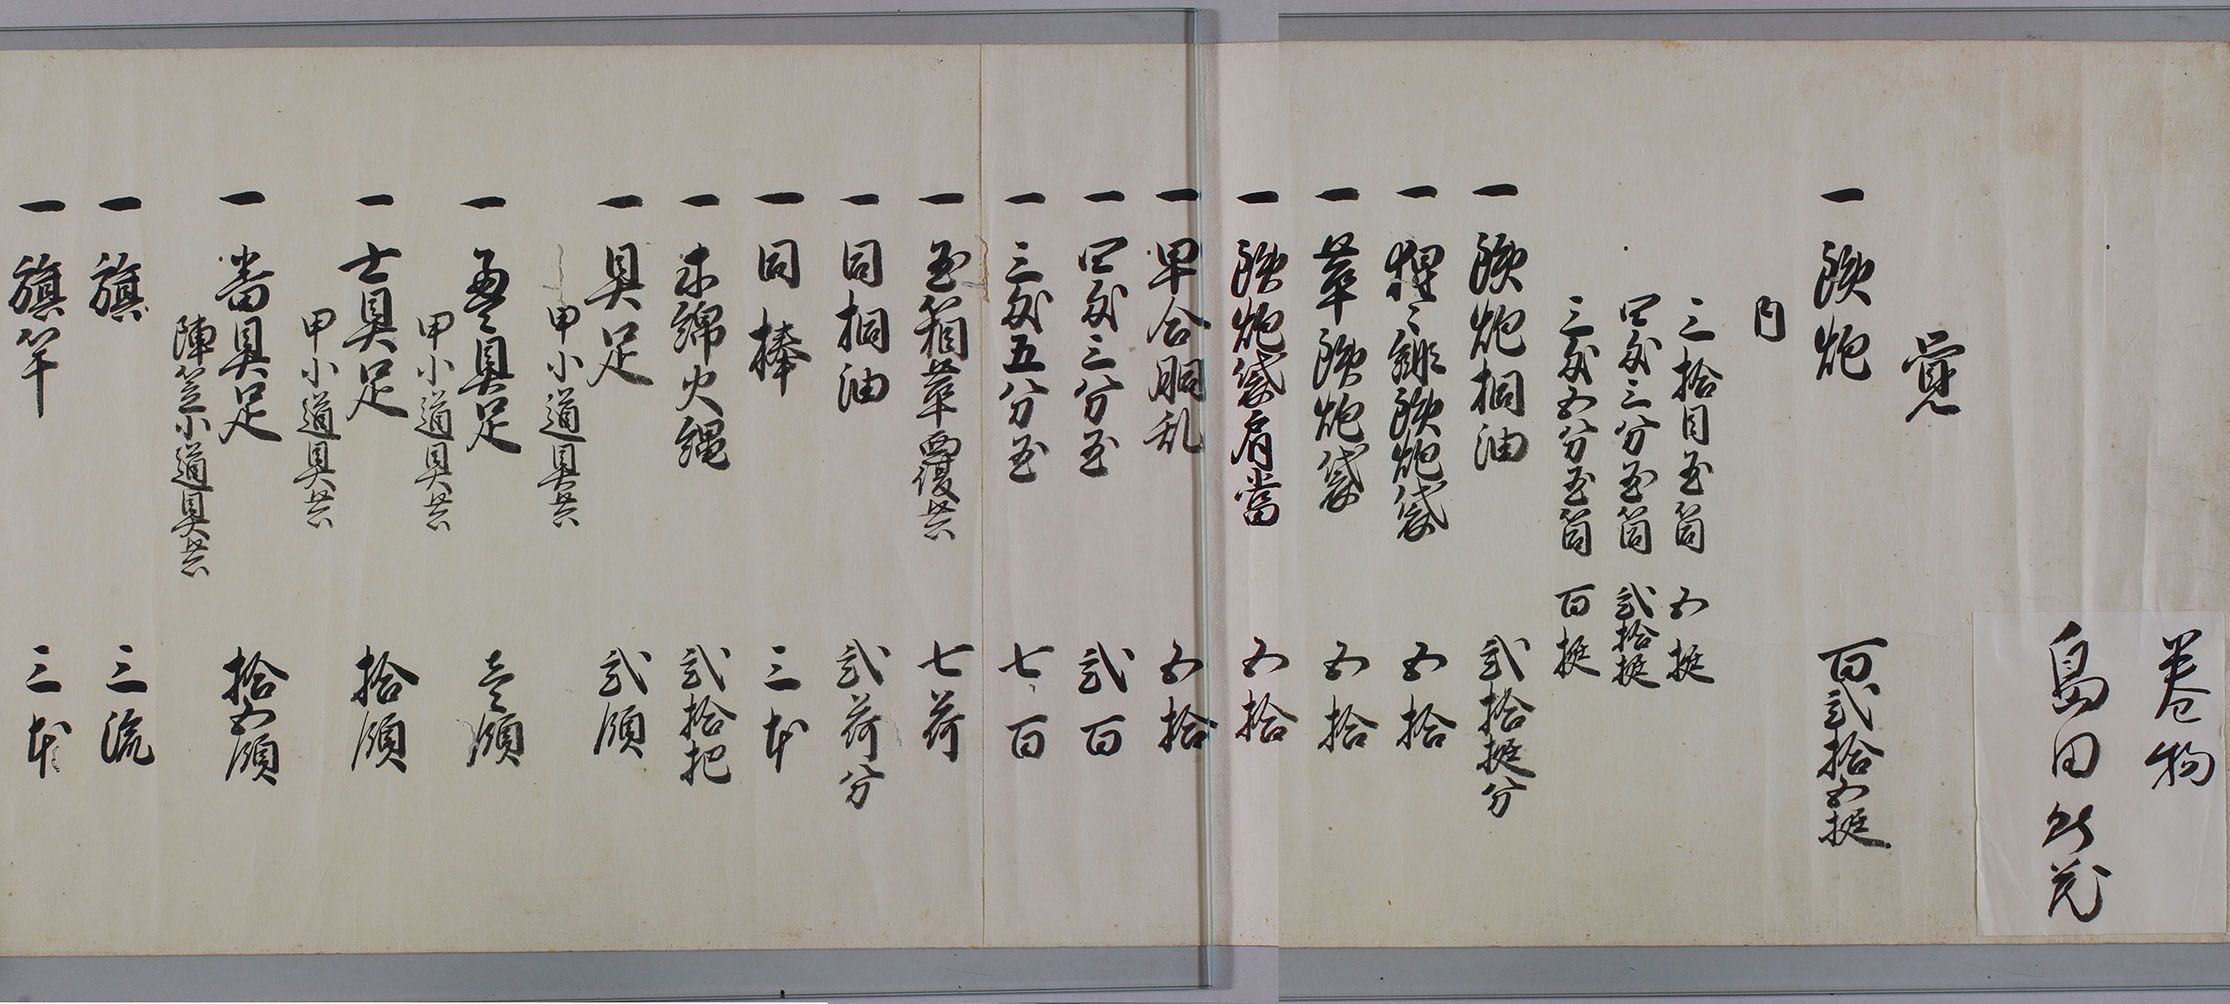 巻物
島田
覚
一 鉄炮 百弐拾五挺
内
三拾目玉筒 五挺
四匁三分玉筒 弐拾挺
三匁五分玉筒 百挺
一 鉄炮桐油 弐拾挺分
一 猩々緋鉄炮袋 五拾
一 革鉄炮袋 五拾
一 鉄炮袋肩当 五拾
一 早合胴乱 五拾
一 四匁三分玉 弐百
一 三匁五分玉 七百
一 玉箱革覆共 七荷
一 同桐油 弐荷分
一 同棒 三本
一 木綿火縄 弐拾把
一 具足 弐領
甲小道具共
一 具足 壱領
甲小道具共
一 士具足 拾領
甲小道具共
一 番具足 拾五領
陣笠小道具共
一 旗 三流
一 旗竿 三本